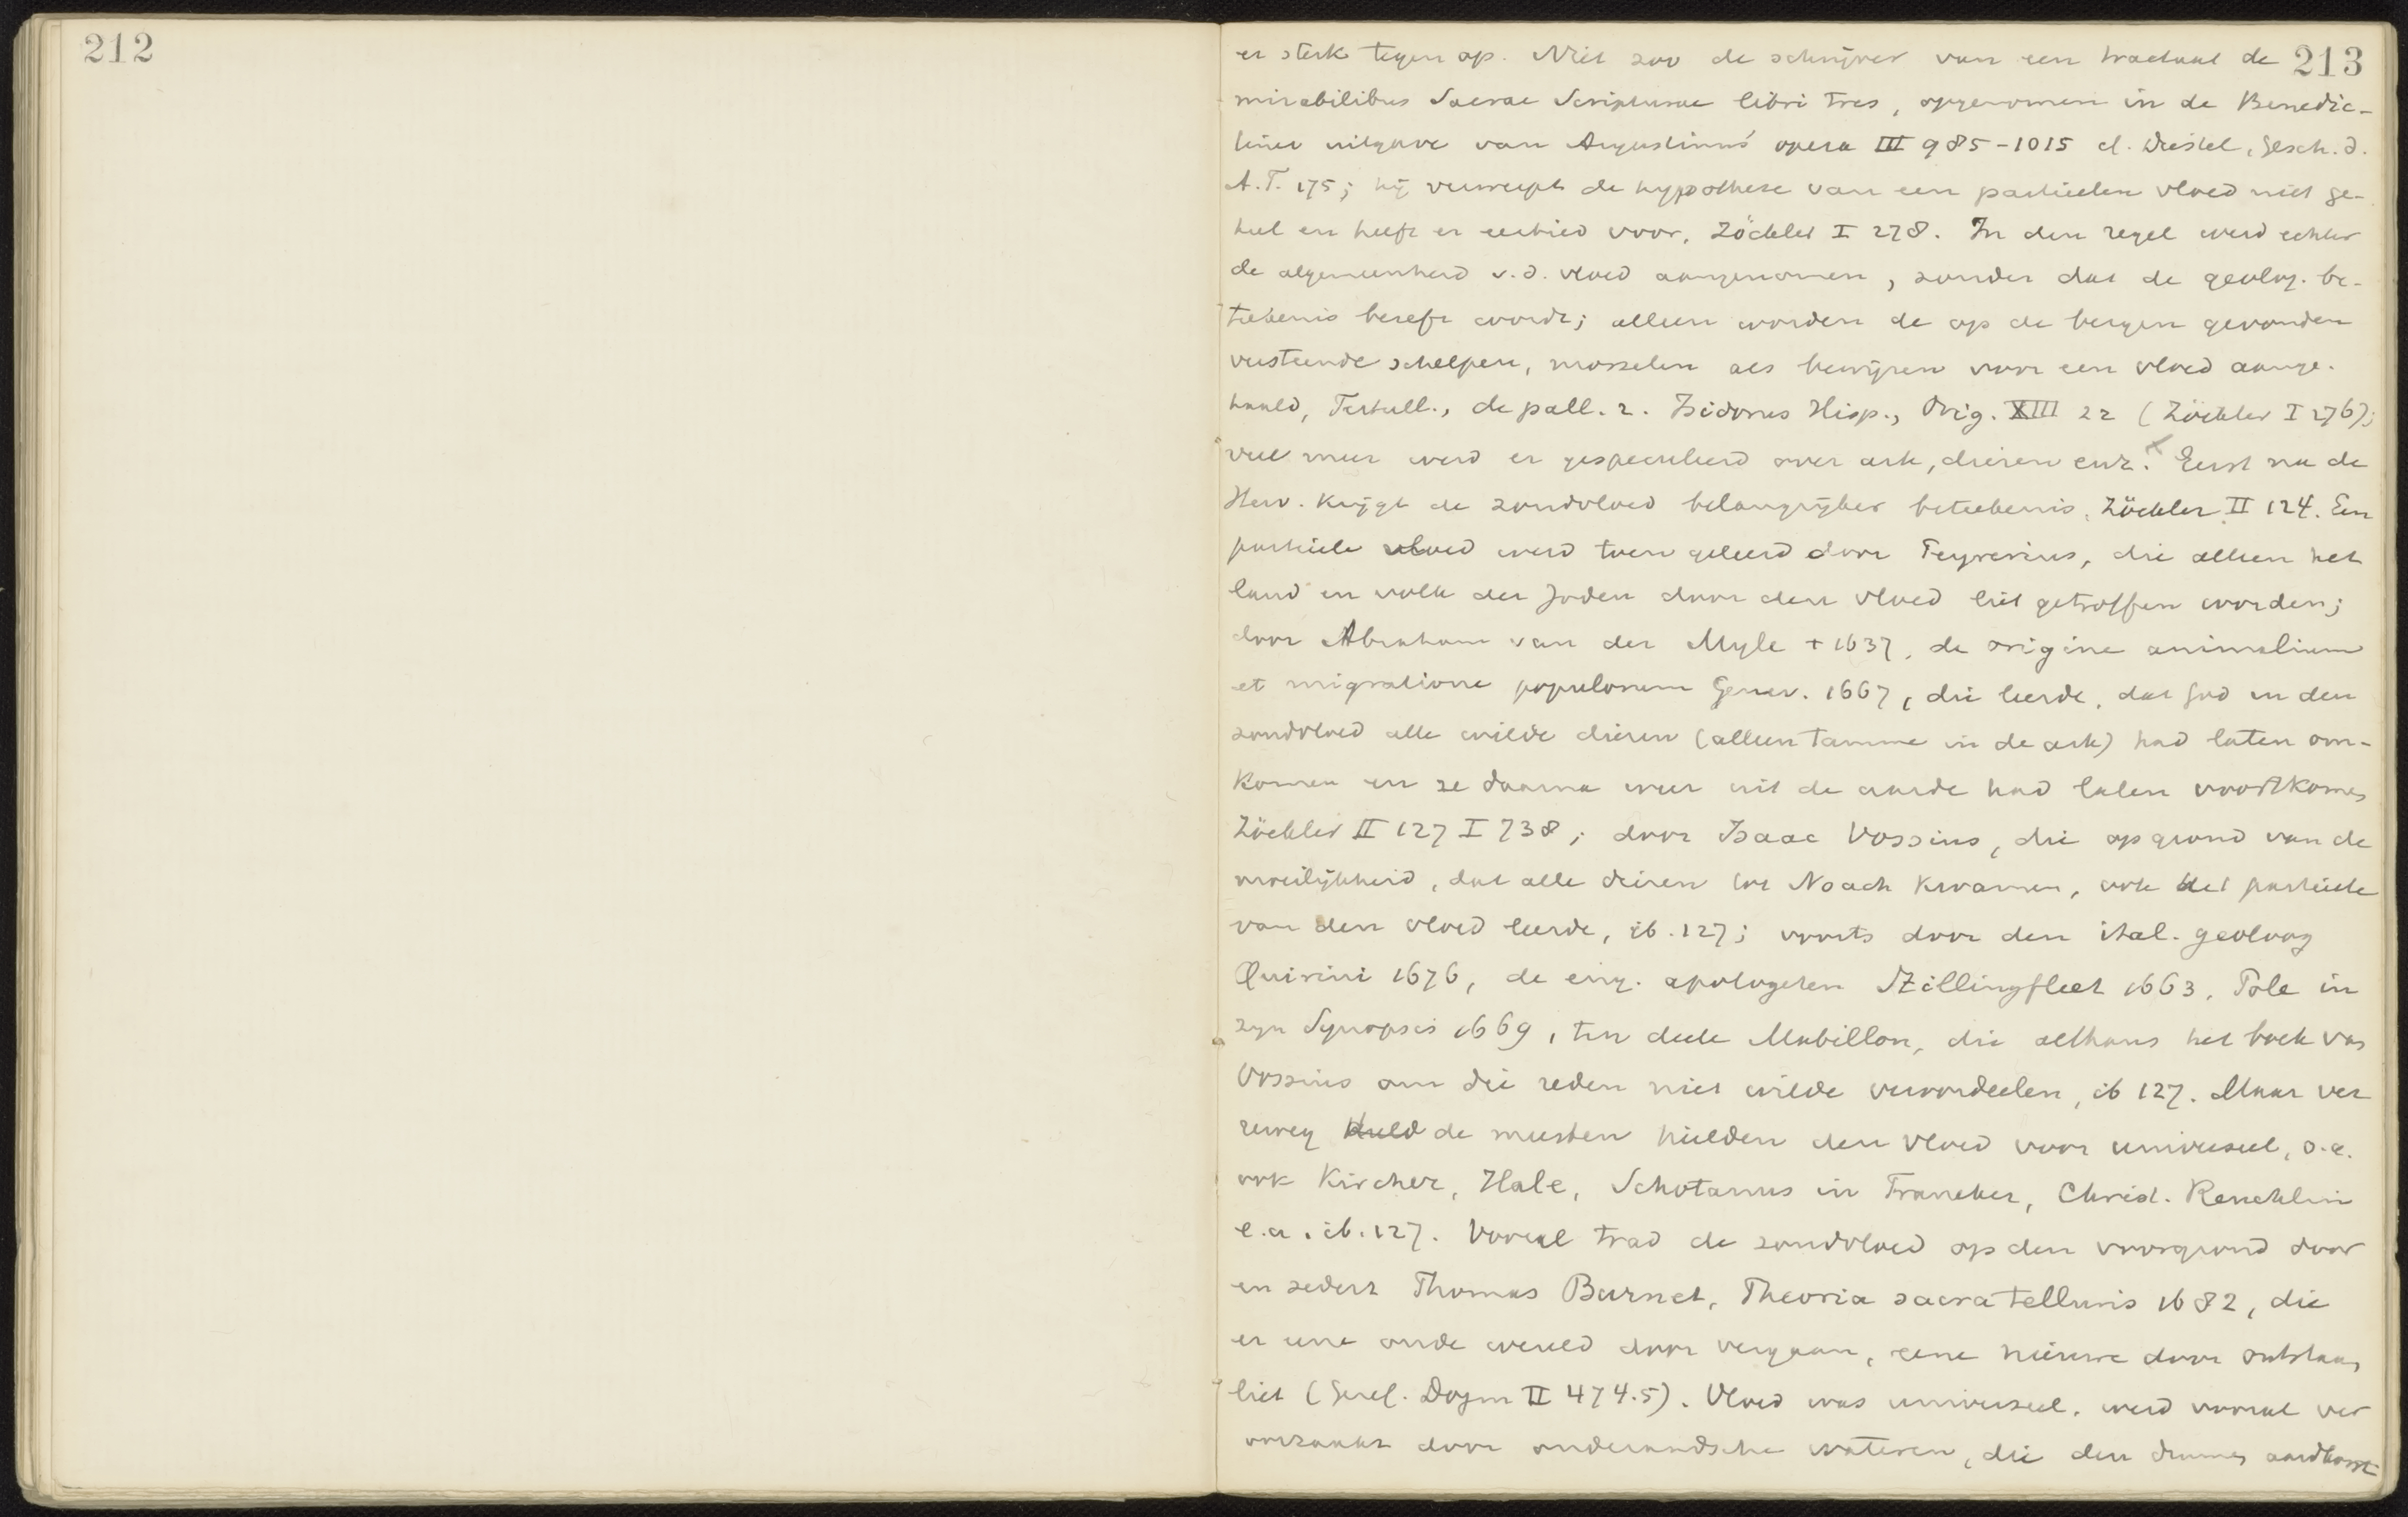 212
213
er sterk tegen op. Niet zoo de schrijver van een tractaat de
mirabilibus Sacrae Scripturae libri tres, opgenomen in de Benedic-
tiner uitgave van Augustinus' opera III 985-1015 cf. Diestel, Gesch. d.
A.T. 175; hij verwerpt de hypothese van een partieelen vloed niet ge-
heel en heeft er eerbied voor, Zöckler I 278. In den regel werd echter
de algemeenheid v.d. vloed aangenomen, zonder dat de geolog. be-
teekenis beseft wordt; alleen worden de op de bergen gevonden
versteende schelpen, mosselen als bewijzen voor een vloed aange-
haald, Tertull., de pall. 2. Isidorus Hisp., Orig. XIII 22 (Zöckler I 276);
veel meer werd er gespeculeerd over ark, dieren enz. Eerst na de
Herv. krijgt de zondvloed belangrijker beteekenis, Zöckler II 124. Een
partieele vloed werd toen geleerd door Peyrerius, die alleen het
land en volk der Joden door den vloed liet getroffen worden;
door Abraham van der Myle + 1637, de origine animalium
et migratione populorum Genev. 1667, die leerde, dat God in den
zondvloed alle wilde dieren (alleen tamme in de ark) had laten om-
komen en ze daarna weer uit de aarde had laten voortkomen
Zöckler II 127 I 738; door Isaac Vossius, die op grond van de
moeilijkheid, dat alle dieren tot Noach kwamen, ook het partieele
van den vloed leerde, ib. 127; voorts door den ital. geoloog
Quirini 1676, de eng. apologeten Stillingfleet 1663, Pole in
zijn Synopsis 1669, ten deele Mabillon, die althans het boek van
Vossius om die reden niet wilde veroordeelen, ib 127. Maar ver
reweg de meesten hielden den vloed voor universeel, o.a.
ook Kircher, Hale, Schotanus in Franeker, Christ. Reuchlin
e.a. ib. 127. Vooral trad de zondvloed op den voorgrond door
en sedert Thomas Burnet, Theoria sacra telluris 1682, die
er eene oude wereld door vergaan, eene nieuwe door ontstaan
liet (Geref. Dogm II 474.5). Vloed was universeel, werd vooral ver
oorzaakt door onderaardsche wateren, die den dunnen aardkorst